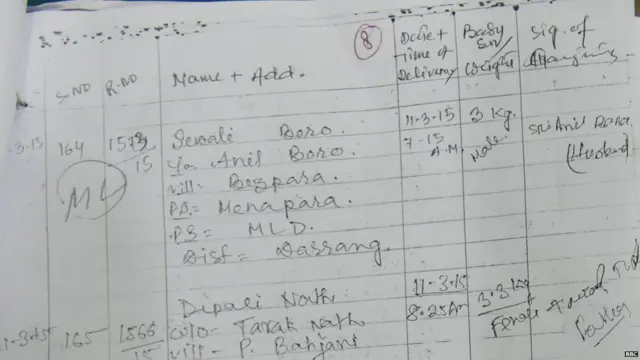 8
S.NO R.NO Name + Add. Date + Time of Delivery Baby Sex/Weight Sig. of
3-15 164 1573/15 Sewali Boro. 11-3-15 3 Kg. Sri Anil
W/o Anil Boro. 7-15 A.M. Male (Husband)
ML vill- Bezpara.
P.O= Menapara.
P.S= MLD.
Dist= Darrang.
Dipali Nath. 11-3-15
1-3-15 165 1566/15 C/o- Tarak Nath. 8-25 AM 3.3 Kg Female
vill- P. Bahjani
BBC